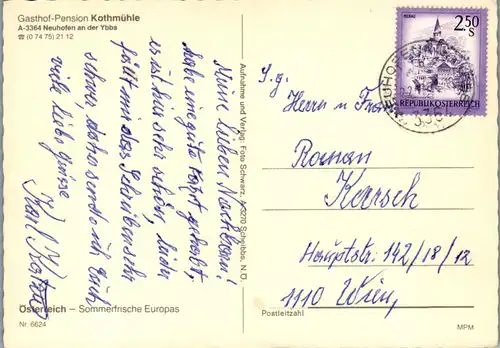 Gasthof-Pension Kothmühle
A-3364 Neuhofen an der Ybbs
☎ (0 74 75) 21 12
Meine lieben Nachbarn!
habe eine gute Fahrt gehabt,
es ist hier sehr schön, leider
fällt mir das Schreiben sehr
schwer, daher sende ich Euch
viele liebe Grüsse
Karl
Österreich – Sommerfrische Europas
Nr. 6624
Aufnahme und Verlag: Foto Schwarz, A-3270 Scheibbs, N.Ö.
MURAU
2.50
S
REPUBLIK ÖSTERREICH
NEUHOFEN
3364
S.g.
Herrn u Frau
Roman
Karsch
Hauptstr. 142/18/12
1110 Wien,
Postleitzahl
MPM